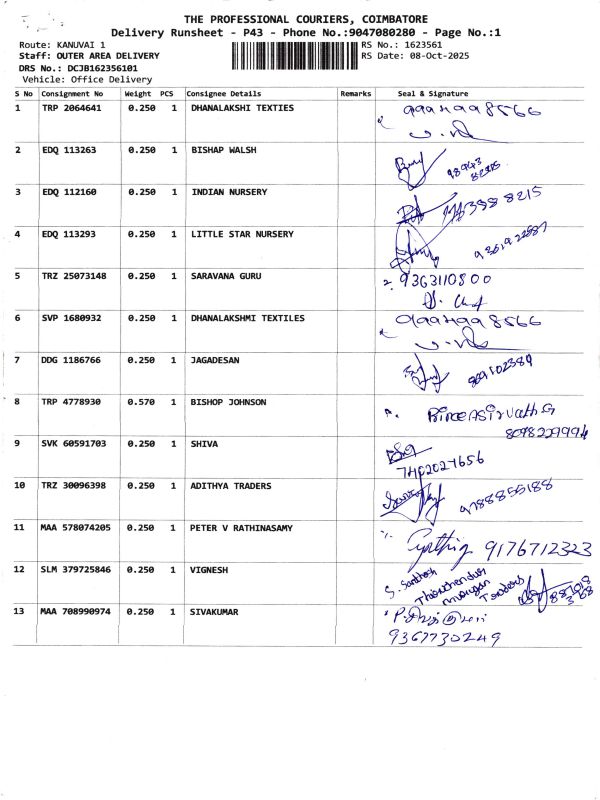 THE PROFESSIONAL COURIERS, COIMBATORE
Delivery Runsheet - P43 - Phone No.:9047080280 - Page No.:1
Route: KANUVAI 1 RS No.: 1623561
Staff: OUTER AREA DELIVERY RS Date: 08-Oct-2025
DRS No.: DCJB162356101
Vehicle: Office Delivery
S No Consignment No Weight PCS Consignee Details Remarks Seal & Signature
1 TRP 2064641 0.250 1 DHANALAKSHI TEXTIES
2 EDQ 113263 0.250 1 BISHAP WALSH
3 EDQ 112160 0.250 1 INDIAN NURSERY
4 EDQ 113293 0.250 1 LITTLE STAR NURSERY
5 TRZ 25073148 0.250 1 SARAVANA GURU 9363110800
6 SVP 1680932 0.250 1 DHANALAKSHMI TEXTILES
7 DDG 1186766 0.250 1 JAGADESAN
8 TRP 4778930 0.570 1 BISHOP JOHNSON
8098229994
9 SVK 60591703 0.250 1 SHIVA
7402027656
10 TRZ 30096398 0.250 1 ADITHYA TRADERS 9788855188
11 MAA 578074205 0.250 1 PETER V RATHINASAMY
9176712323
12 SLM 379725846 0.250 1 VIGNESH S. Santhosh
Thiruchendur
murugan
Traders
13 MAA 708990974 0.250 1 SIVAKUMAR
9367730249